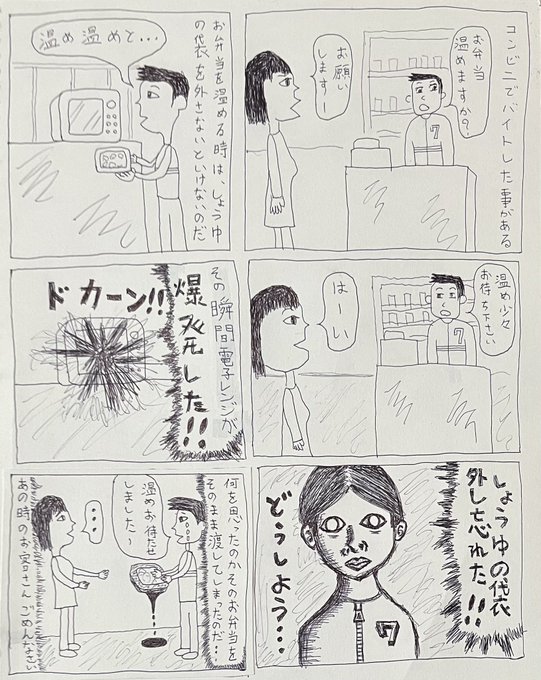 コンビニでバイトした事がある
お弁当
温めますか?
お願い
します〜
お弁当を温める時は、しょうゆ
の袋を外さないといけないのだ
温め温めと…
温め少々
お待ち下さい
はーい
7
7
その瞬間電子レンジが
爆発した!!
ドカーン!!
しょうゆの袋
外し忘れた!!
どうしよう…
7
何を思ったのかそのお弁当を
そのまま渡してしまったのだ…
温めお待たせ
しました〜
…
あの時のお客さんごめんなさい